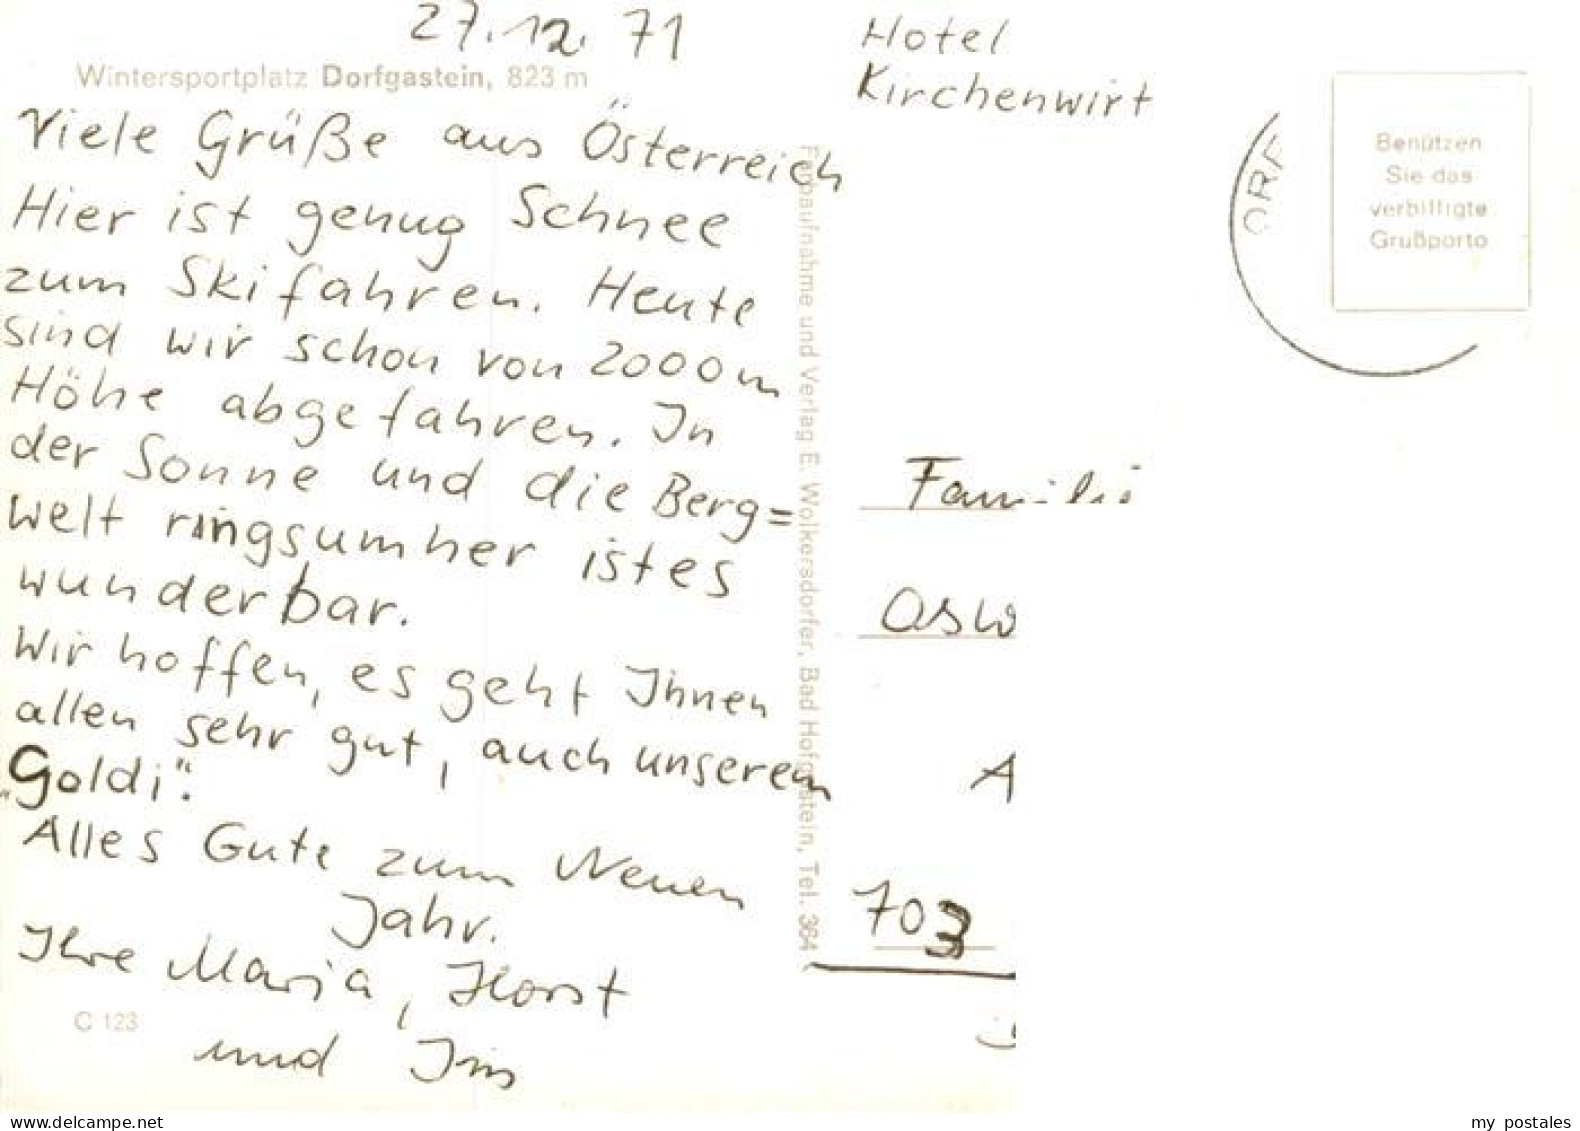 27.12.71
Wintersportplatz Dorfgastein, 823 m
Viele Grüße aus Österreich
Hier ist genug Schnee
zum Skifahren. Heute
sind wir schon von 2000m
Höhe abgefahren. In
der Sonne und die Berg=
welt ringsumher ist es
wunderbar.
Wir hoffen, es geht Ihnen
allen sehr gut, auch unserem
„Goldi“.
Alles Gute zum Neuen
Jahr.
Ihre Maria, Horst
und
C 123
Farbaufnahme und Verlag E. Wolkersdorfer, Bad Hofgastein, Tel. 364
Hotel
Kirchenwirt
Benützen
Sie das
verbilligte
Grußporto
ORF
Familie
Osw
A
703
www.delcampe.net
my postales